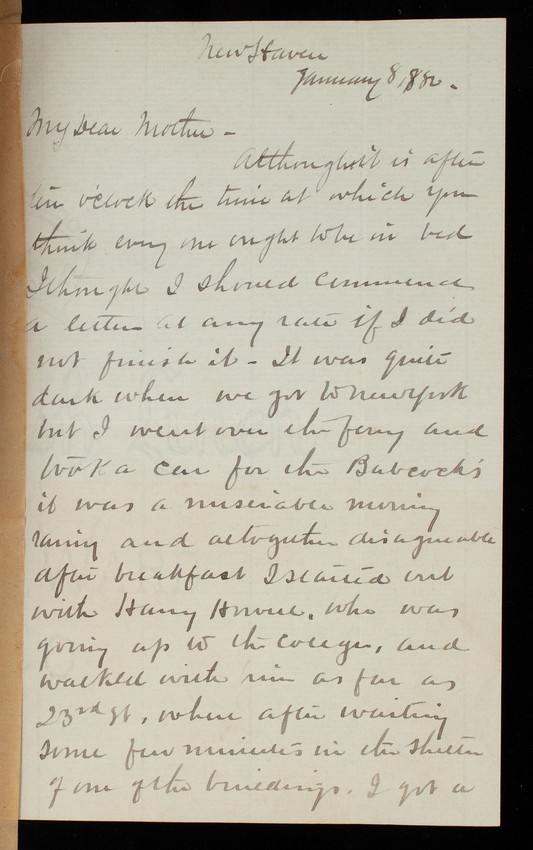 New Haven
January 8, 1880.
My Dear Mother -
Although it is after
ten o'clock the time at which you
think every one ought to be in bed
I thought I should commence
a letter at any rate if I did
not finish it - It was quite
dark when we got to New York
but I went over the ferry and
took a car for the Babcock's
it was a miserable morning
rainy and altogether disagreeable
after breakfast I started out
with Harry , who was
going up to the College, and
walked with him as far as
23rd St, where after waiting
some few minutes in the shelter
of one of the buildings. I got a